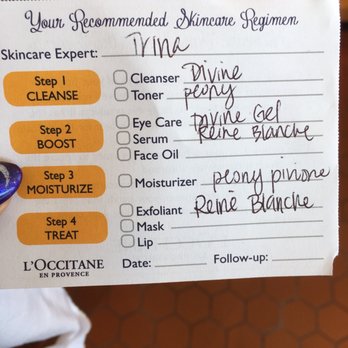 Your Recommended Skincare Regimen
Skincare Expert: Irina
Step 1
CLEANSE
Cleanser Divine
Toner peony
Step 2
BOOST
Eye Care Divine Gel
Serum Reine Blanche
Face Oil
Step 3
MOISTURIZE
Moisturizer peony pivione
Step 4
TREAT
Exfoliant Reine Blanche
Mask
Lip
L'OCCITANE
EN PROVENCE
Date:
Follow-up: